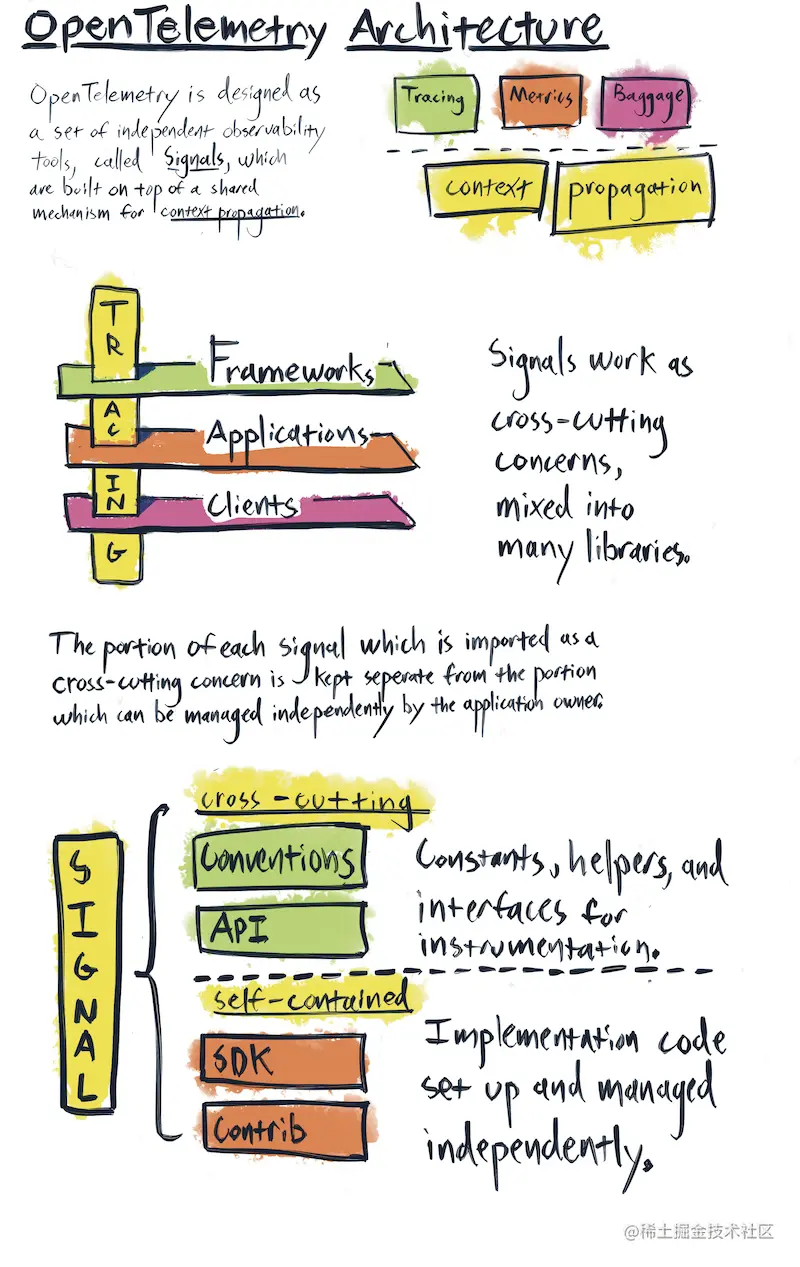 OpenTelemetry Architecture
OpenTelemetry is designed as
a set of independent observability
tools, called Signals, which
are built on top of a shared
mechanism for context propagation.
Tracing
Metrics
Baggage
context
propagation
TRACING
Frameworks
Applications
Clients
Signals work as
cross-cutting
concerns,
mixed into
many libraries.
The portion of each signal which is imported as a
cross-cutting concern is kept seperate from the portion
which can be managed independently by the application owner.
SIGNAL
cross-cutting
Conventions
API
Constants, helpers, and
interfaces for
instrumentation.
self-contained
SDK
Contrib
Implementation code
set up and managed
independently.
@稀土掘金技术社区